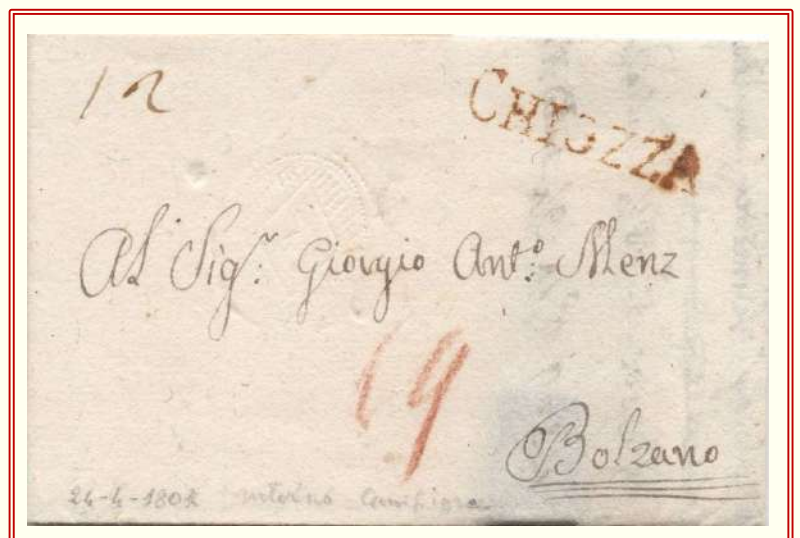 12
CHIOZZA
Al Sig.r Giorgio Ant.o Menz
19
Bolzano
24-4-180